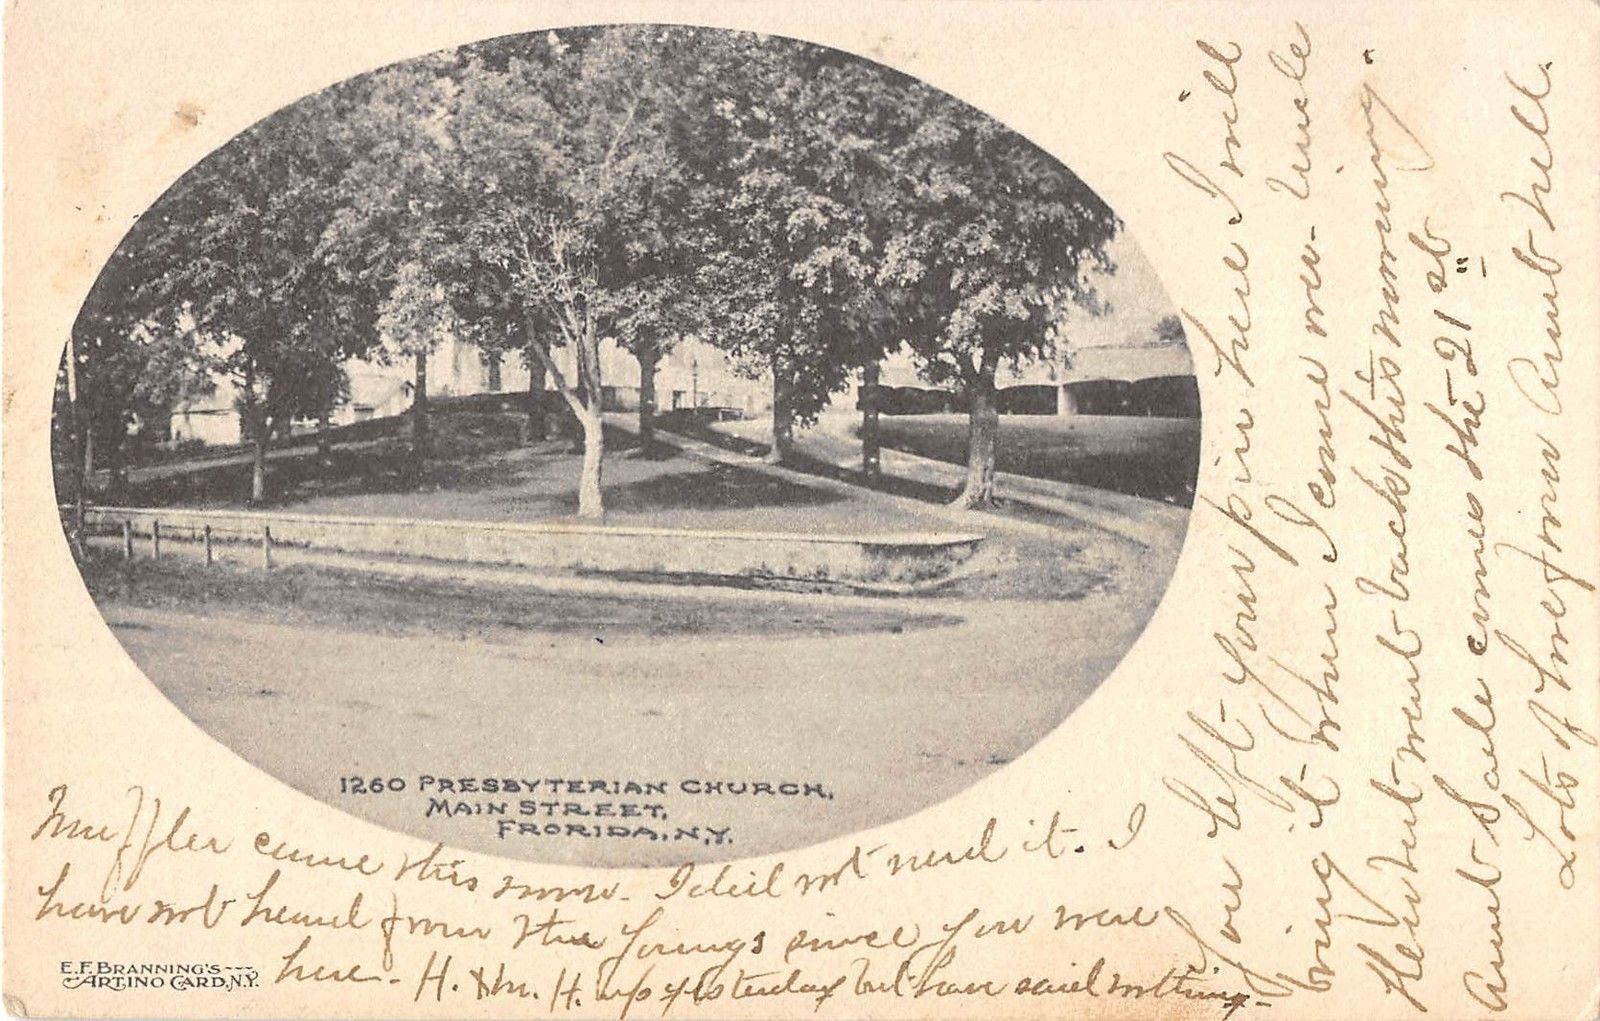 1260 PRESBYTERIAN CHURCH,
MAIN STREET,
FRORIDA, N.Y.
Muffler came this morn. I did not need it. I
have not heard from the Youngs since you were
here. H. & Mr. H. up yesterday but have said nothing-
E.F. BRANNING'S
ARTINO CARD, N.Y.
You left your pin here I will
bring it when I come over- Uncle
Herbert went back this morning.
Aunt Sale comes the 21 st
Lots of love from Aunt Nell.